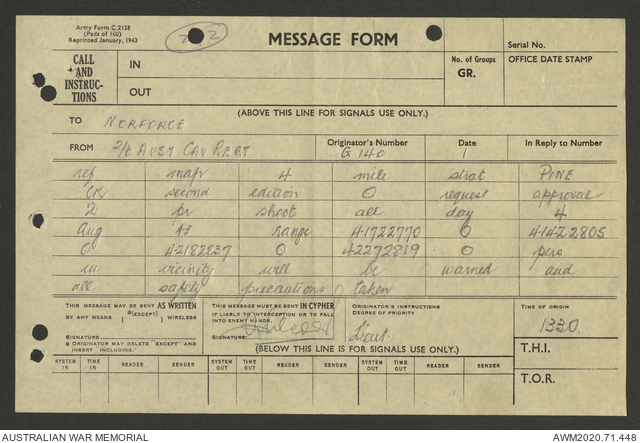 Army Form C.2128
(Pads of 100)
Reprinted January, 1943
MESSAGE FORM
Serial No.
CALL AND INSTRUC-TIONS
IN
OUT
No. of Groups
GR.
OFFICE DATE STAMP
(ABOVE THIS LINE FOR SIGNALS USE ONLY.)
TO NORFORCE
FROM 2/6 AUST CAV REGT
Originator's Number
G 140
Date
1
In Reply to Number
ref map 4 mile strat PINE
CK second edition O request approval
2 tr shoot all day 4
Aug 43 range 41722770 O 41422805
O 42182837 O 42272819 O pers
in vicinity will be warned and
all safety precautions taken
THIS MESSAGE MAY BE SENT AS WRITTEN
BY ANY MEANS (*(EXCEPT) ) WIRELESS
SIGNATURE
* ORIGINATOR MAY DELETE "EXCEPT" AND INSERT "INCLUDING."
THIS MESSAGE MUST BE SENT IN CYPHER
IF LIABLE TO INTERCEPTION OR TO FALL INTO ENEMY HANDS.
SIGNATURE
Lieut
ORIGINATOR'S INSTRUCTIONS
DEGREE OF PRIORITY
TIME OF ORIGIN
1330
(BELOW THIS LINE IS FOR SIGNALS USE ONLY.)
T.H.I.
T.O.R.
SYSTEM IN TIME IN READER SENDER SYSTEM OUT TIME OUT READER SENDER SYSTEM OUT TIME OUT READER SENDER
AUSTRALIAN WAR MEMORIAL
AWM2020.71.448